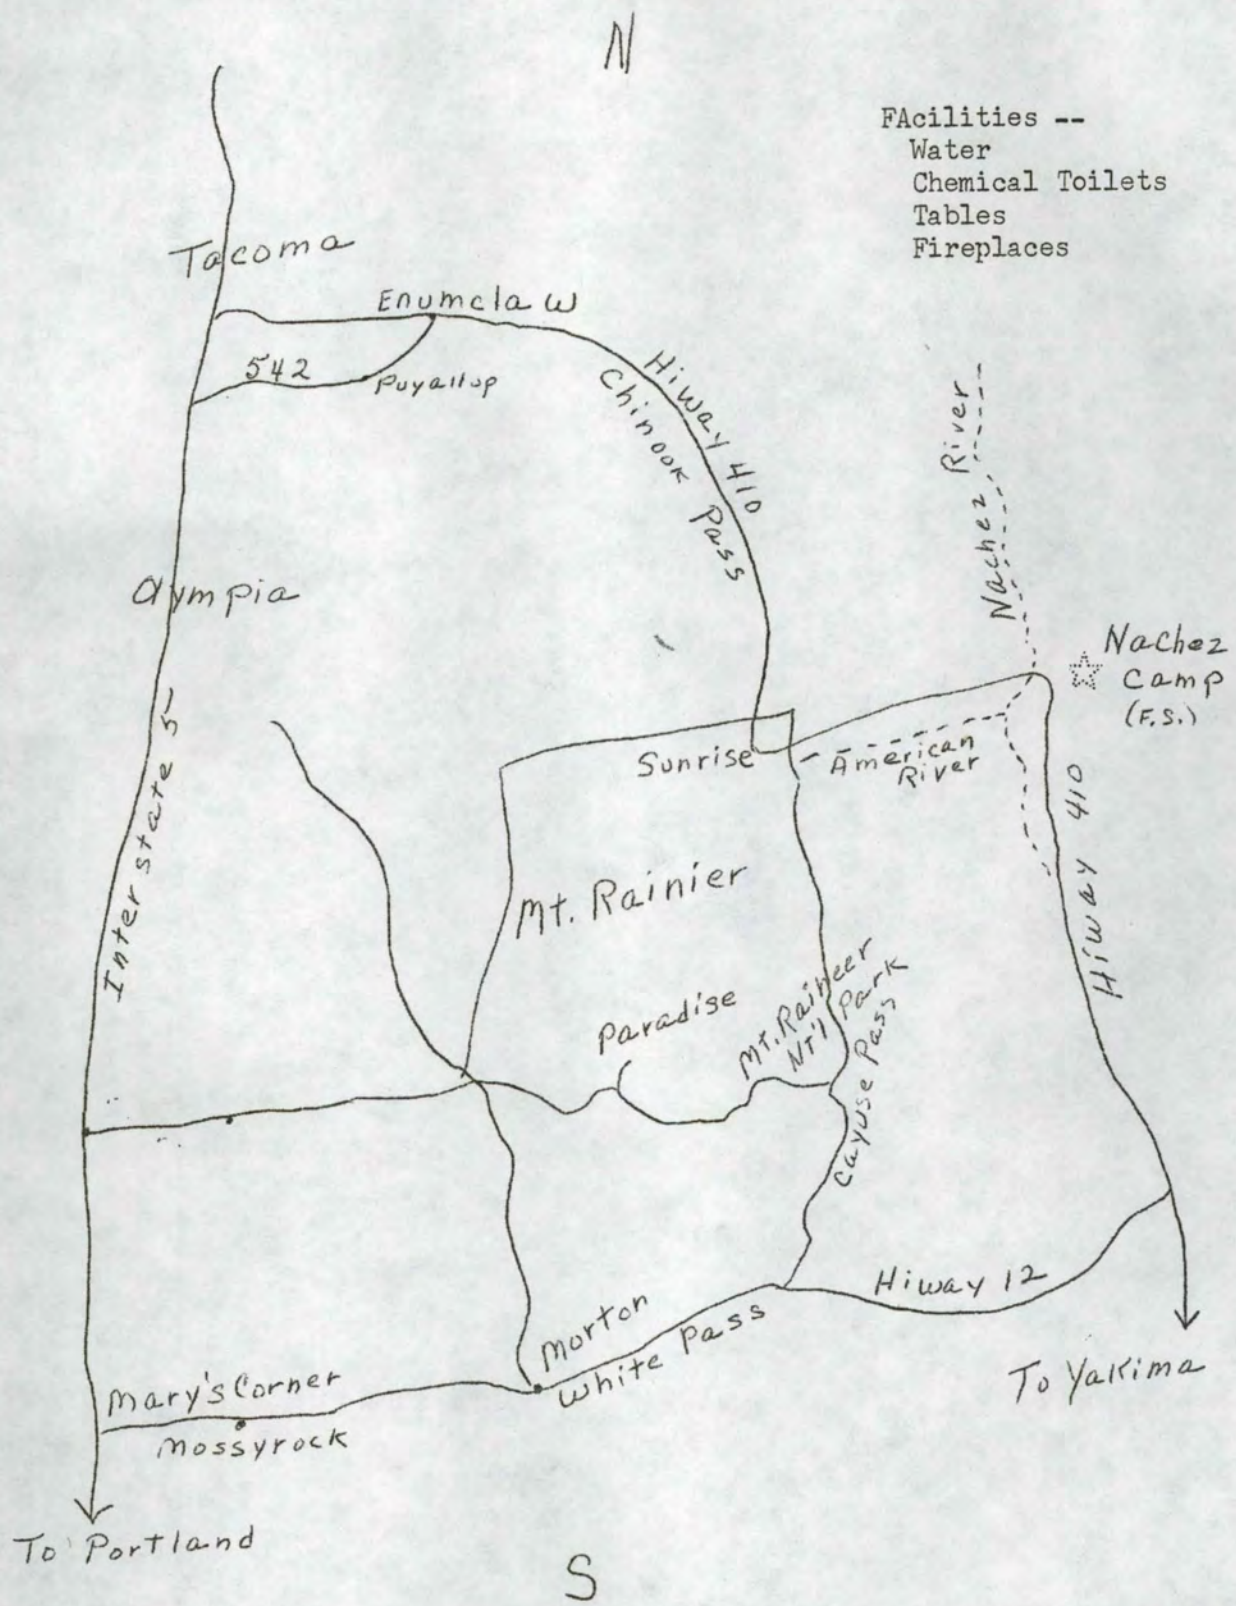 N
FAcilities --
Water
Chemical Toilets
Tables
Fireplaces
Tacoma
Enumclaw
542
Puyallup
Hiway 410
Chinook Pass
Nachez River
Olympia
Nachez
Camp
(F.S.)
Interstate 5
Sunrise
American
River
Hiway 410
Mt. Rainier
Paradise
Mt. Raineer
Nt'l Park
Cayuse Pass
Hiway 12
Morton
White Pass
To Yakima
Mary's Corner
Mossyrock
To Portland
S